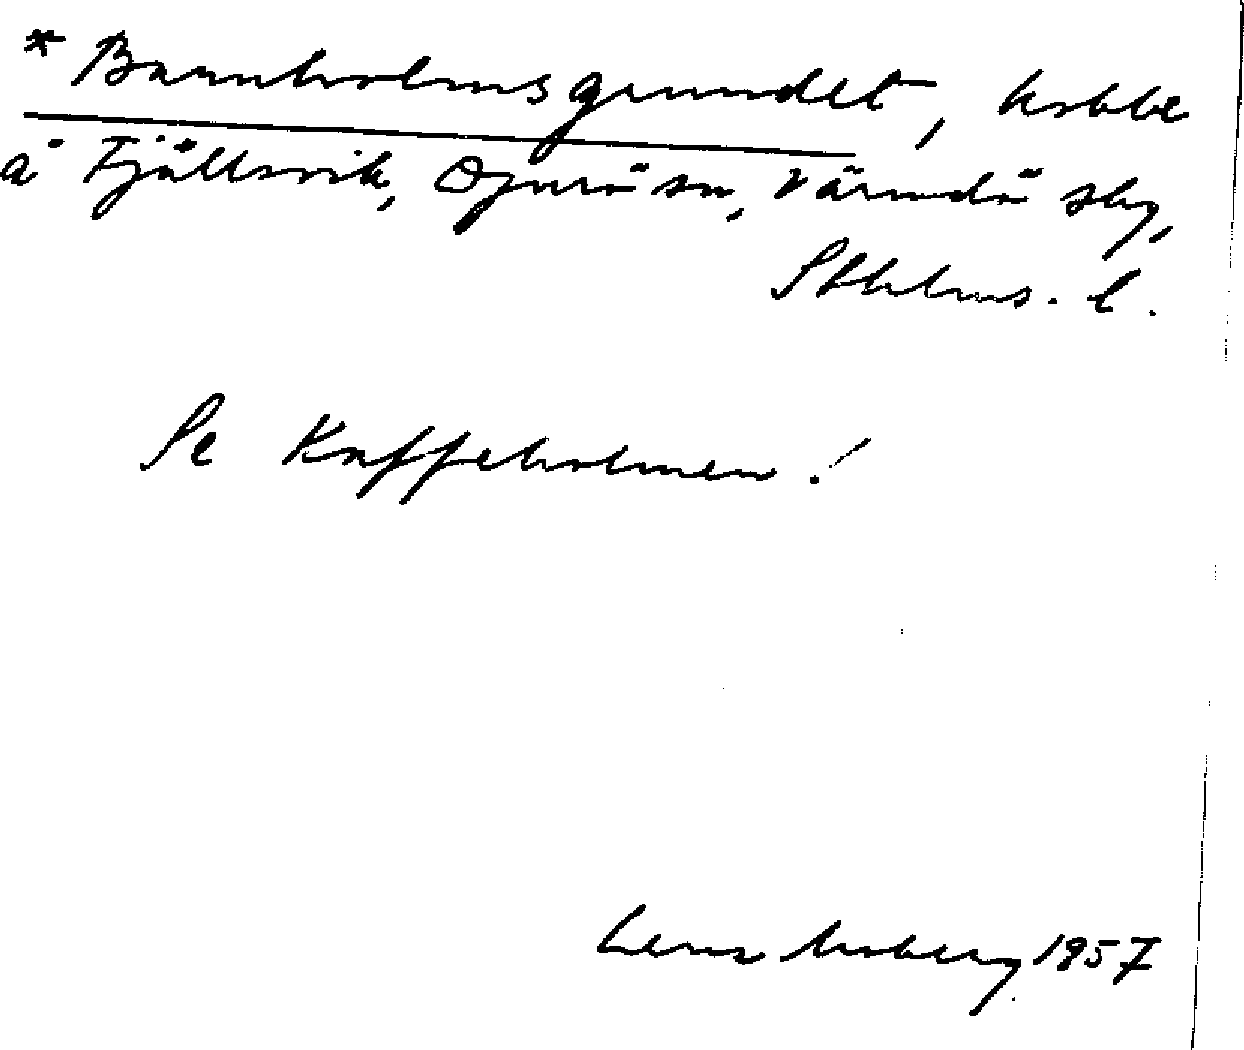 * Bannholmsgrundet, kobbe
å Fjällsvik, Djurö sn, Värmdö slg,
Sthlms. l.
Se Kaffeholmen!
Lena Moberg 1957